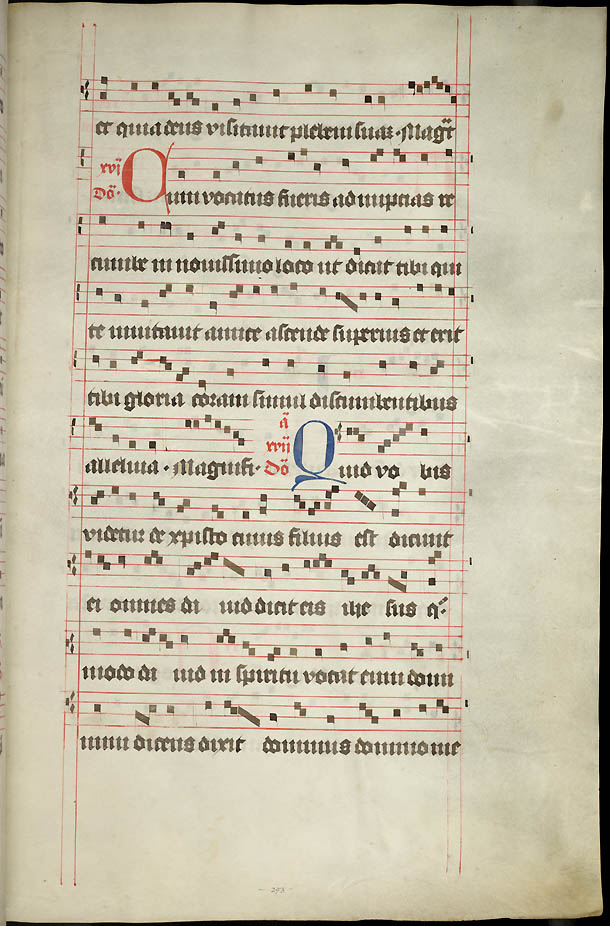 et quia deus visitavit plebem suaz. Magt
xvi
Do. Cum vocatus fueris ad nuptias re
cumbe in novissimo loco ut dicat tibi qui
te invitavit amice ascende superius et erit
tibi gloria coram simul discumbentibus
a
alleluia. Magnifi. xvii
Do Quid vo bis
videtur de xpisto cuius filius est dicunt
ei omnes da uid dicit eis ihe sus q
modo da uid in spiritu vocat eum domi
num dicens dixit dominus domino me
293